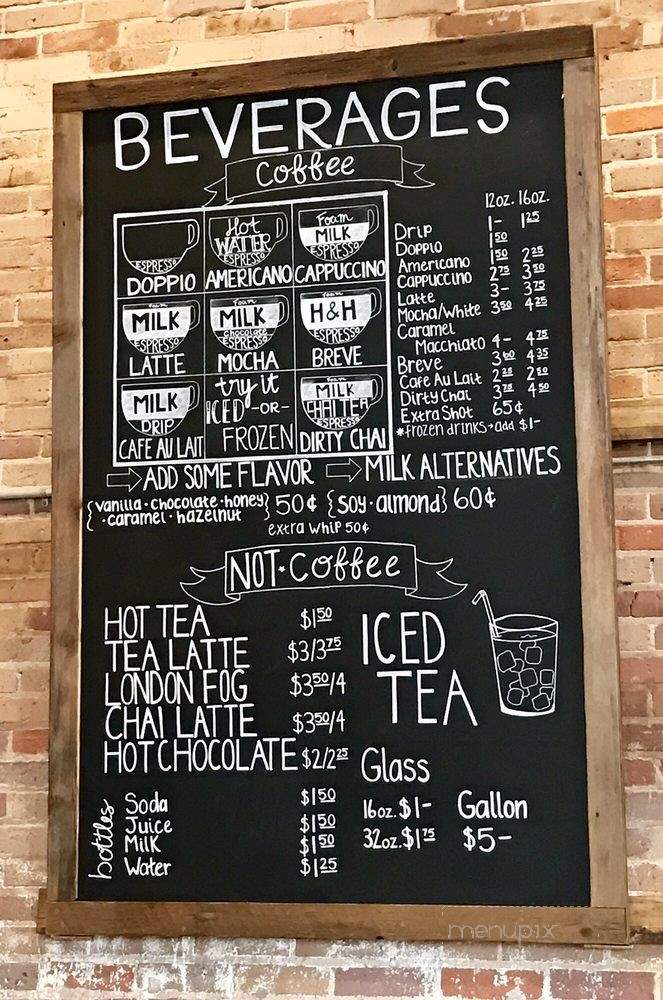 BEVERAGES
Coffee
ESPRESSO
DOPPIO
Hot
WATER
ESPRESSO
AMERICANO
Foam
MILK
ESPRESSO
CAPPUCCINO
Foam
MILK
ESPRESSO
LATTE
Foam
MILK
Chocolate
ESPRESSO
MOCHA
Foam
H&H
ESPRESSO
BREVE
MILK
DRIP
CAFE AU LAIT
try it
ICED -OR-
FROZEN
Foam
MILK
CHAI TEA
ESPRESSO
DIRTY CHAI
12oz. 16oz.
Drip 1- 1.25
Doppio 1.50
Americano 1.50 2.25
Cappuccino 2.75 3.50
Latte 3- 3.75
Mocha/White 3.50 4.25
Caramel
Macchiato 4- 4.75
Breve 3.60 4.35
Cafe Au Lait 2.25 2.50
Dirty Chai 3.75 4.50
Extra Shot 65¢
*frozen drinks→add $1-
ADD SOME FLAVOR
{vanilla·chocolate·honey
·caramel·hazelnut} 50¢
MILK ALTERNATIVES
{soy·almond} 60¢
extra whip 50¢
NOT*Coffee
HOT TEA $1.50
TEA LATTE $3/3.75
LONDON FOG $3.50/4
CHAI LATTE $3.50/4
HOT CHOCOLATE $2/2.25
bottles
Soda $1.50
Juice $1.50
Milk $1.50
Water $1.25
ICED
TEA
Glass
16oz. $1-
32oz. $1.75
Gallon
$5-
menupix